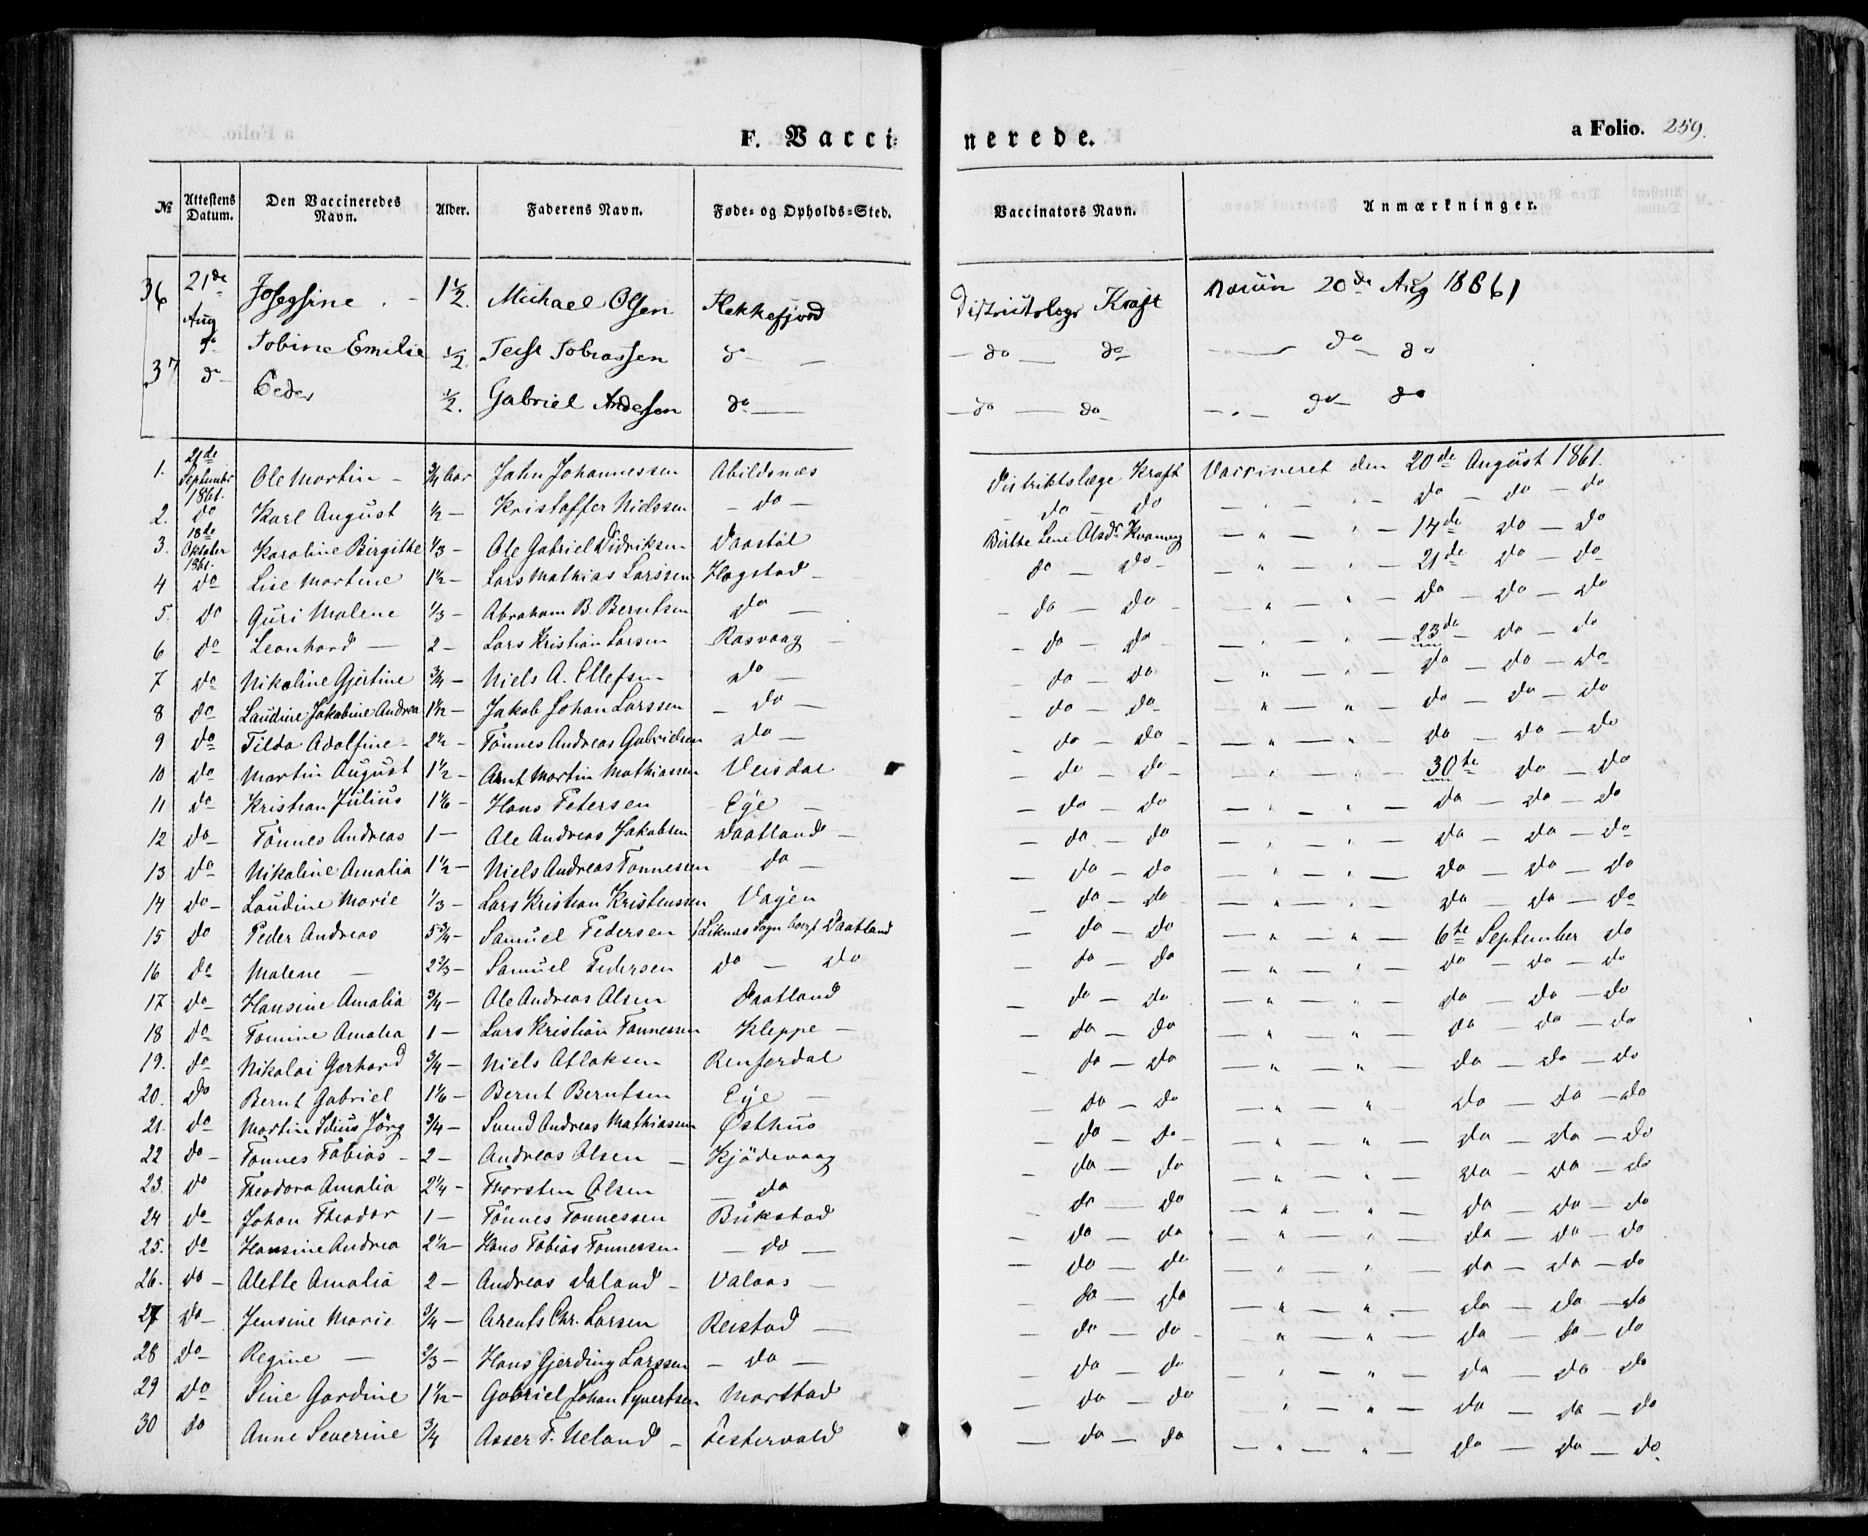 F. Vacci-
nerede.
a Folio. 259.
№ Attestens Datum. Den Vaccineredes Navn. Alder. Faderens Navn. Føde- og Opholds-Sted. Vaccinators Navn. Anmærkninger.
36 21de Aug Josephine 1½. Michael Olsen Flekkefjord Kraft 20de Aug 1861
do Tobine Emilie ½. Tobiassen do — — do — do do do
37 do Peder ½. Gabriel Andersen do — — do — do do do
1. 21de September 1861. Ole Martin — ¾ Aar John Johannessen Abildsnæs Distriktslæge Kraft Vaccineret den 20de August 1861.
2. do Karl August ½ — Kristoffer Nielssen — do — — do — do — " — " — do — do — do
3. 18de Oktober 1861. Karoline Birgithe ⅓ — Ole Gabriel Didriksen Daastöl Birthe Lene Olsdr Kvanvig — " — " — 14de do — do
4 do Lise Martine 1½ — Lars Mathias Larssen Hogstad — do — do — — " — " — 21de do — do
5. do Guri Malene ⅓ — Abraham B. Berntsen do — — do — do — — " — " — do — do — do
6 do Leonhard — 2 — Lars Kristian Larsen Rasvaag — — do — do — " — " — 23de — do — do
7 do Nikoline Gjertine ¾ — Niels A. Ellefsen do — — do — do — " — " — do — do — do
8 do Laudine Jakobine Andrea 1½ — Jakob Johan Larssen — do — — do — do — " — " — do — do — do
9 do Tilda Adolfine — 2½ — Tönnes Andreas Gabrielsen do — — do — do — — " — " — do — do — do
10 do Martin August 1½ — Arnt Martin Mathiassen Veisdal — do — do — — " — " — 30te do — do
11 do Kristian Julius 1⅙ — Hans Petersen Eÿe — — do — do — " — " — do — do — do
12 do — Tönnes Andreas 1 — Ole Andreas Jakobsen Daatland — — do — do — " — " — do — do — do
13 do Nikoline Amalia 1½ — Niels Andreas Tonnessen do — — do — do — " — " — do — do — do
14 do — Laudine Marie ⅓ — Lars Kristian Kristenssen Vagen — do — do — " — " — do — do — do
15 do Peder Andreas 5¾ — Samuel Pedersen Daatland — do — do — " — " — 6te September do
16 do Malene — 2⅔ — Samuel Pedersen do — do — do — do — " — " — do — do — do
17 do — Hansine Amalia ¾ — Ole Andreas Olsen Daatland — do — do — " — " — do — do — do
18 do Tomine Amalia 1 — Lars Kristian Tonnessen Kleppe — — do — do — " — " — do — do — do
19. do Nikolai Gerhard ¾ — Niels Atlaksen Renferdal — do — do — " — " — do — do — do
20. do Bernt Gabriel 1⅙ — Bernt Berntsen Eÿe — do — do — " — " — do — do — do
21. do Martin ¾ — Svend Andreas Mathiassen Østhus — do — do — — " — " — do — do — do
22 do — Tonnes Tobias — 2 — Andreas Olsen — Kjödevaag — do — do — " — " — do — do — do
23. do Theodora Amalia 2¼ — Thorsten Olsen — do — do — do — " — " — do — do — do
24 do — Johan Theodor 1 — Tönnes Tonnessen Bukstad — do — do — " — " — do — do — do
25. do Hansine Andrea 2½ — Hans Tobias Tonnessen — do — — do — do — " — " — do — do — do
26. do — Alette Amalia 2 — Andreas Daland — Valaas — — do — do — " — " — do — do — do
27 do — Jensine Marie ¾ — Arents Chr. Larsen Reistad — — do — do — — " — " — do — do — do
28 do — Regine — ⅔ — Hans Gjerding Larssen — do — — do — do — " — " — do — do — do
29 do Sine Gardine 1½ — Gabriel Johan Syvertsen Marstad — do — do — " — " — do — do — do
30 do Anne Severine ¾ Asser T. Ueland — Festervold — do — do — " — " — do — do — do.